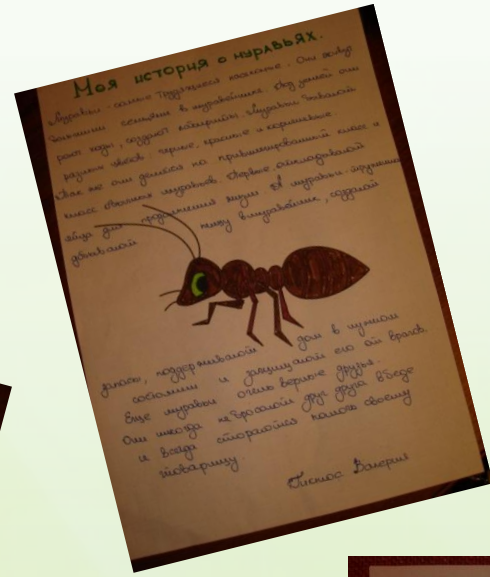 Моя история о муравьях.
Муравьи - самые трудящиеся насекомые. Они живут
большими семьями в муравейнике. Под землей они
роют ходы, создают лабиринты. Муравьи бывают
разных цветов: черные, красные и коричневые.
Так же они делятся на привилегированный класс и
класс обычных муравьев. Первые откладывают
яйца для продолжения жизни. А муравьи-труженики
добывают пищу в муравейник, создают
запасы, поддерживают дом в нужном
состоянии и защищают его от врагов.
Еще муравьи очень верные друзья.
Они никогда не бросают друг друга в беде
и всегда стараются помочь своему
товарищу.
Валерия